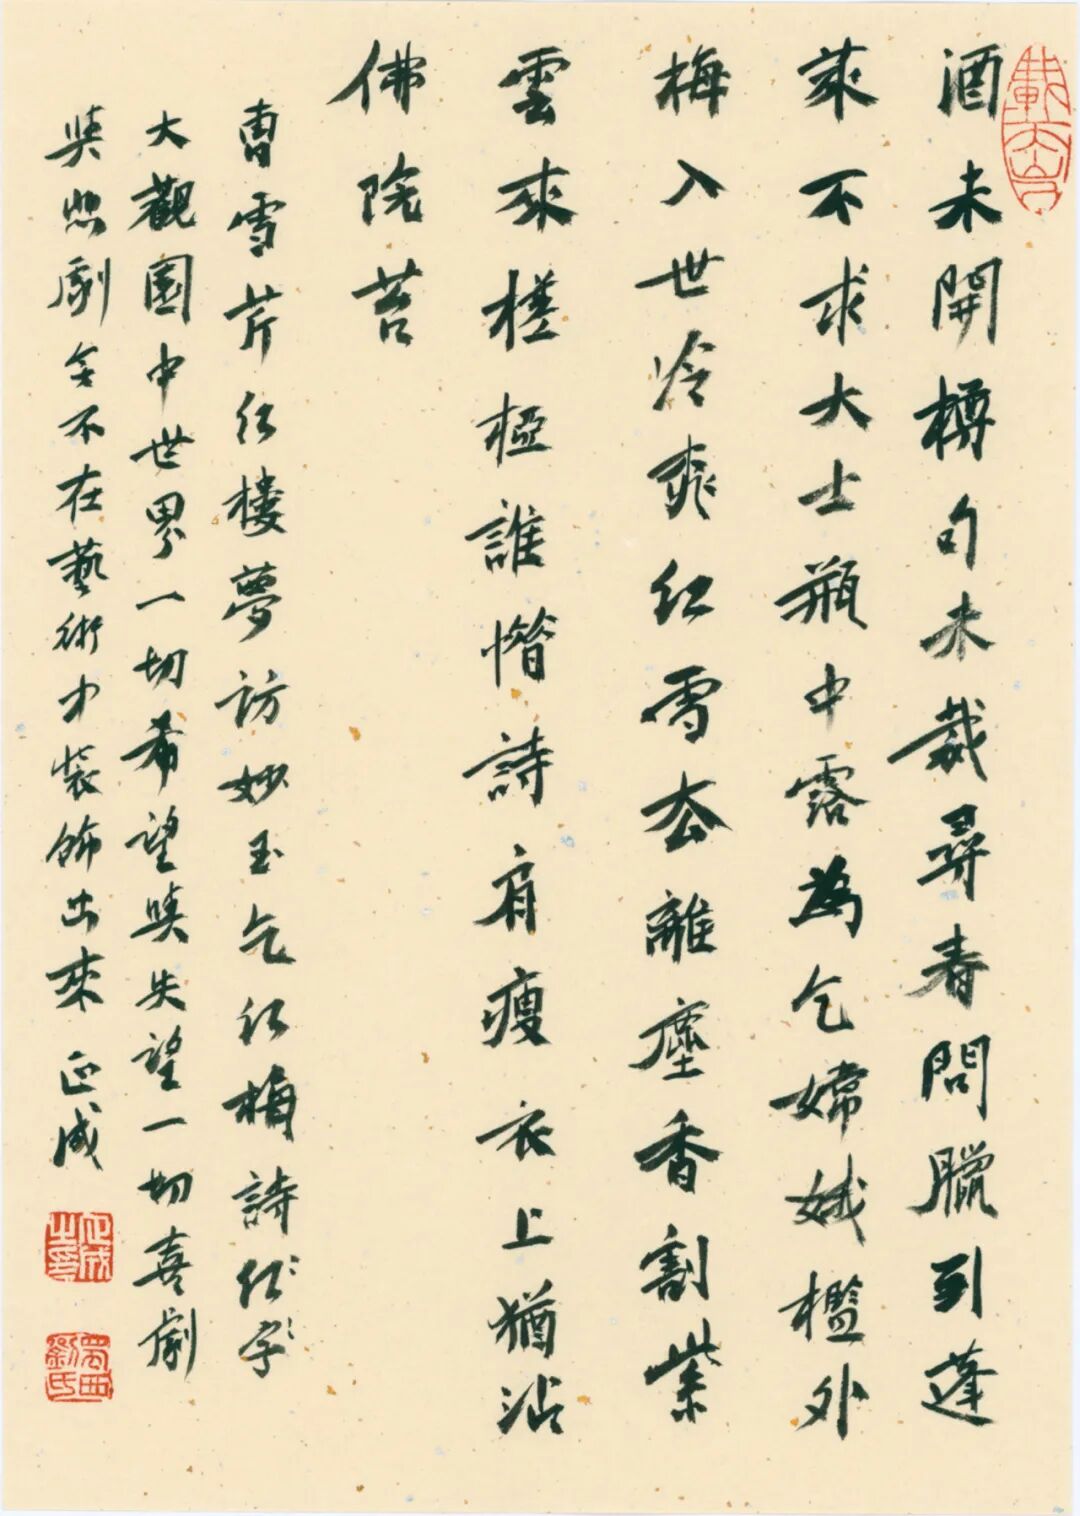 酒未開樽句未裁尋春問臘到蓬
萊不求大士瓶中露為乞嫦娥檻外
梅入世冷挑紅雪去離塵香割紫
雲來槎椏誰惜詩肩瘦衣上猶沾
佛院苔
曹雪芹紅樓夢訪妙玉乞紅梅詩紅字
大觀園中世界一切希望與失望一切喜劇
與悲劇無不在藝術中裝飾出來 正成
正成之印
蜀西劉氏